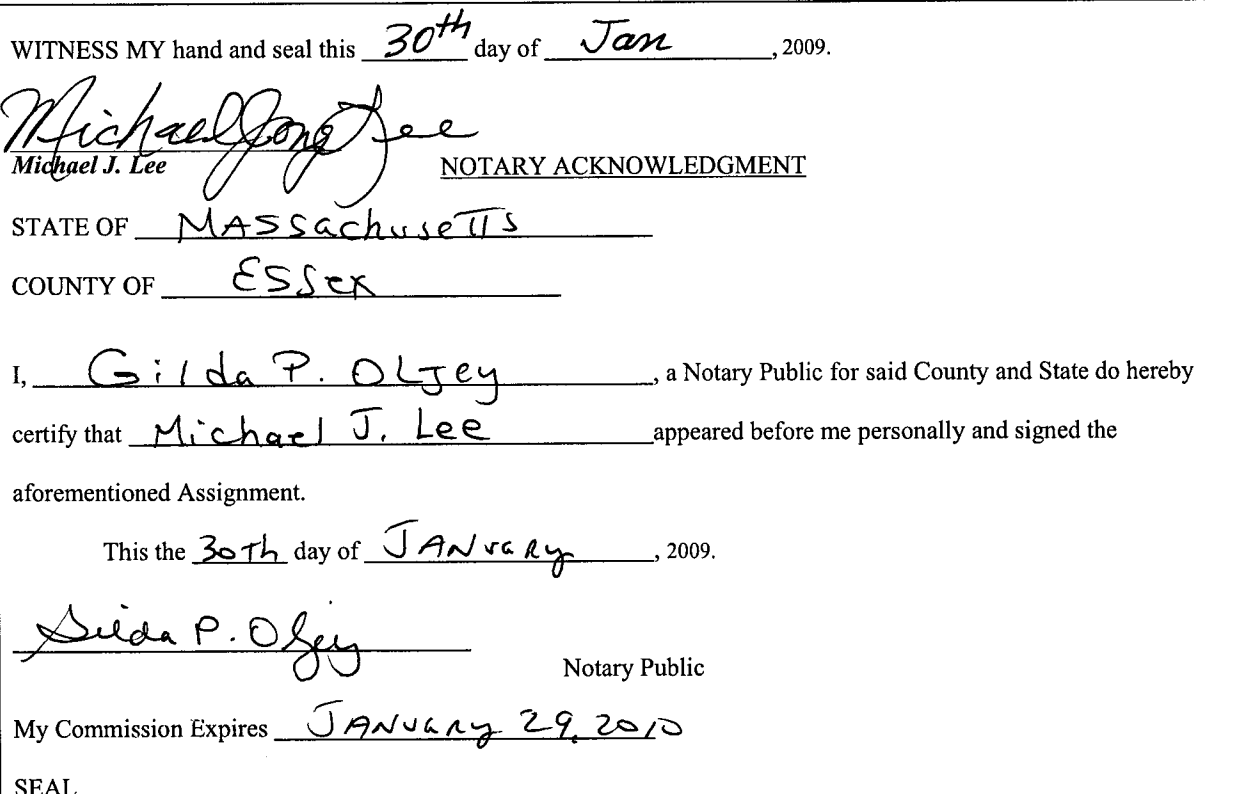 WITNESS MY hand and seal this 30th day of Jan, 2009.
Michael Jong Lee
Michael J. Lee
NOTARY ACKNOWLEDGMENT
STATE OF MASSachuseTTS
COUNTY OF ESSex
I, Gilda P. OLJey, a Notary Public for said County and State do hereby
certify that Michael J. Lee appeared before me personally and signed the
aforementioned Assignment.
This the 30Th day of JANuaRy, 2009.
Gilda P. Oljey
Notary Public
My Commission Expires JANuARy 29, 2010
SEAL